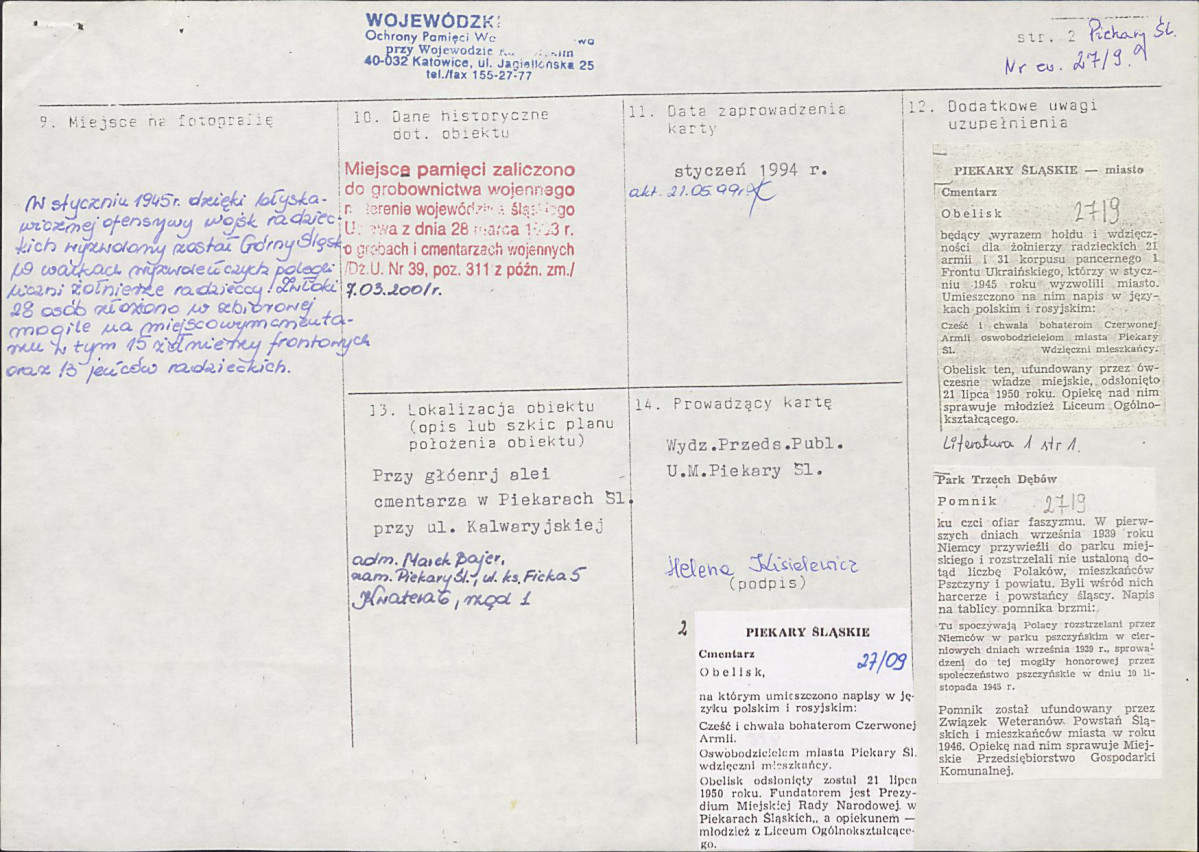 WOJEWÓDZKI
Ochrony Pamięci
przy Wojewodzie
40-032 Katowice, ul. Jagiellońska 25
tel./fax 155-27-77
str. 2 Piekary Śl.
Nr ew. 27/9.
9. Miejsce na fotografię
W styczniu 1945r. dzięki błyska-
wicznej ofensywy wojsk radziec-
kich wyzwolony został Górny Śląsk
W walkach wyzwoleńczych polegli
liczni żołnierze radzieccy. Zwłoki
28 osób złożono w zbiorowej
mogile na miejscowym cmenta-
rzu w tym 15 żołnierzy frontowych
oraz 13 jeńców radzieckich.
10. Dane historyczne
dot. obiektu
Miejsce pamięci zaliczono
do grobownictwa wojennego
na terenie województwa śląskiego
Ustawa z dnia 28 marca 1933 r.
o grobach i cmentarzach wojennych
/Dz.U. Nr 39, poz. 311 z późn. zm./
7.03.2001r.
11. Data zaprowadzenia
karty
styczeń 1994 r.
akt. 21.05.99r.
12. Dodatkowe uwagi
uzupełnienia
PIEKARY ŚLĄSKIE — miasto
Cmentarz
Obelisk 27/9
będący wyrazem hołdu i wdzięcz-
ności dla żołnierzy radzieckich 21
armii i 31 korpusu pancernego 1
Frontu Ukraińskiego, którzy w stycz-
niu 1945 roku wyzwolili miasto.
Umieszczono na nim napis w języ-
kach polskim i rosyjskim:
Cześć i chwała bohaterom Czerwonej
Armii oswobodzicielom miasta Piekary
Śl. Wdzięczni mieszkańcy.
Obelisk ten, ufundowany przez ów-
czesne władze miejskie, odsłonięto
21 lipca 1950 roku. Opiekę nad nim
sprawuje młodzież Liceum Ogólno-
kształcącego.
Literatura 1 str 1.
Park Trzech Dębów
Pomnik 27/9
ku czci ofiar faszyzmu. W pierw-
szych dniach września 1939 roku
Niemcy przywieźli do parku miej-
skiego i rozstrzelali nie ustaloną do-
tąd liczbę Polaków, mieszkańców
Pszczyny i powiatu. Byli wśród nich
harcerze i powstańcy śląscy. Napis
na tablicy pomnika brzmi:
Tu spoczywają Polacy rozstrzelani przez
Niemców w parku pszczyńskim w cier-
niowych dniach września 1939 r., sprowa-
dzeni do tej mogiły honorowej przez
społeczeństwo pszczyńskie w dniu 10 li-
stopada 1945 r.
Pomnik został ufundowany przez
Związek Weteranów Powstań Ślą-
skich i mieszkańców miasta w roku
1946. Opiekę nad nim sprawuje Miej-
skie Przedsiębiorstwo Gospodarki
Komunalnej.
13. Lokalizacja obiektu
(opis lub szkic planu
położenia obiektu)
Przy głóenrj alei
cmentarza w Piekarach Śl.
przy ul. Kalwaryjskiej
adm. Marek Bajer,
zam. Piekary Śl., ul. ks. Ficka 5
Kwatera 6, rząd 1
14. Prowadzący kartę
Wydz.Przeds.Publ.
U.M.Piekary Śl.
Helena Kisielewicz
(podpis)
2 PIEKARY ŚLĄSKIE
Cmentarz 27/09
Obelisk,
na którym umieszczono napisy w ję-
zyku polskim i rosyjskim:
Cześć i chwała bohaterom Czerwonej
Armii.
Oswobodzicielom miasta Piekary Śl.
wdzięczni mieszkańcy.
Obelisk odsłonięty został 21 lipca
1950 roku. Fundatorem jest Prezy-
dium Miejskiej Rady Narodowej w
Piekarach Śląskich,, a opiekunem —
młodzież z Liceum Ogólnokształcące-
go.